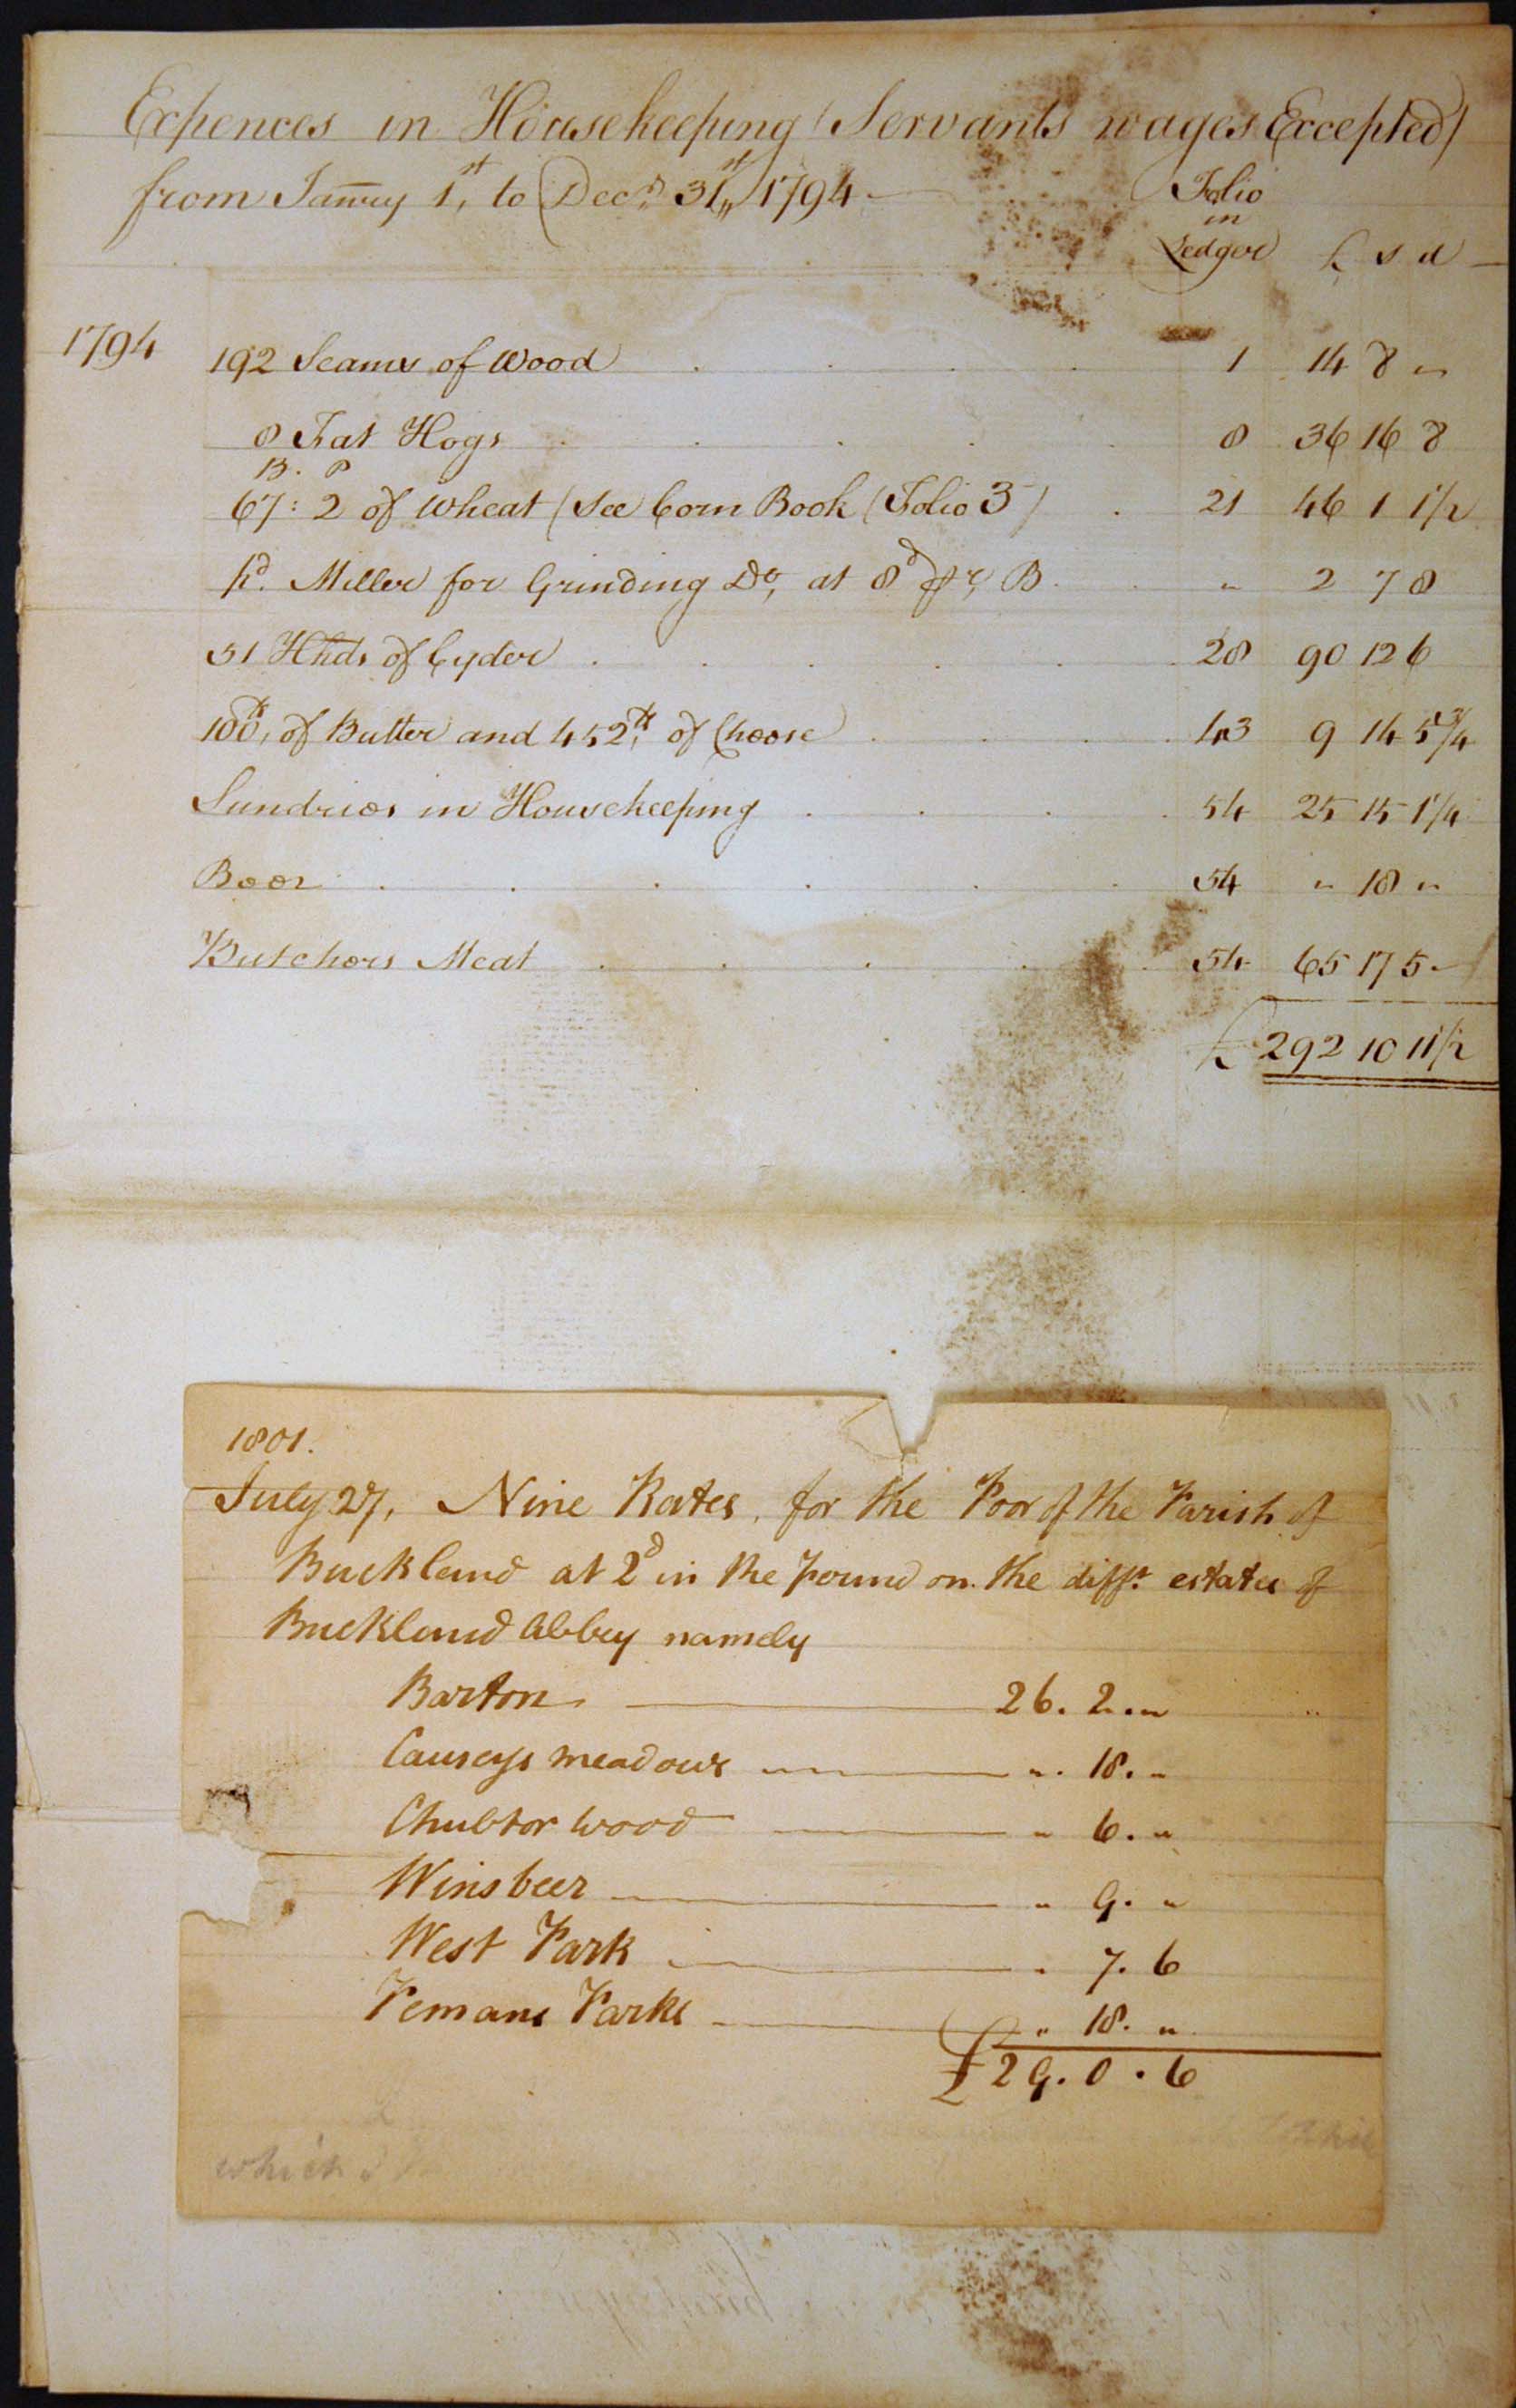 Expences in Housekeeping (Servants wages Excepted)
from Janry 1st, to Decr 31st, 1794
Folio
in
Ledger £ s d
1794 192 Seams of Wood 1 14 8 "
8 Fat Hogs 8 36 16 8
B. P
67: 2 of Wheat (See Corn Book (Folio 3) 21 46 1 1/2
pd. Miller for Grinding Do, at 8d pr, B " 2 7 8
51 Hhds of Cyder 28 90 12 6
100lb, of Butter and 452lb, of Cheese 43 9 14 5 3/4
Sundries in Housekeeping 54 25 15 1 1/4
Beer 54 " 18 "
Butchers Meat 54 65 17 5
£ 292 10 11 1/2
1801.
July 27, Nine Rates, for the Poor of the Parish of
Buckland at 2d in the pound on the difft. estates of
Buckland Abbey namely
Barton 26. 2. "
Causeys meadows ". 18. "
Chubtor Wood " 6. "
Winsbeer " 9. "
West Park " 7. 6
Pemans Parks " 18. "
£29. 0. 6
which